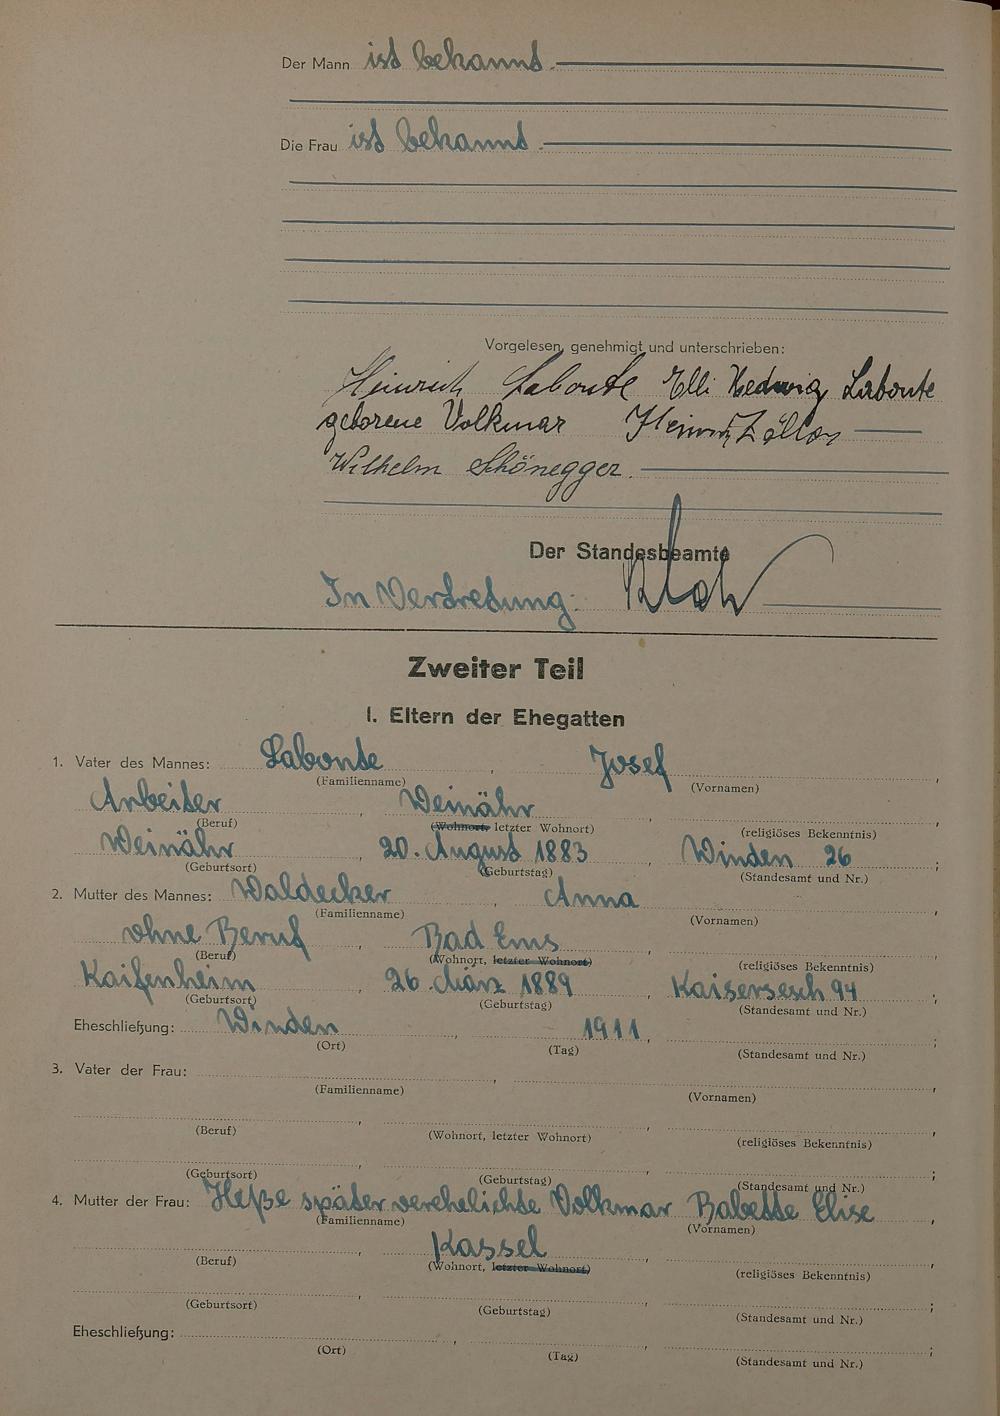 Der Mann ist bekannt.
Die Frau ist bekannt.
Vorgelesen, genehmigt und unterschrieben:
Heinrich Labonte Elli Hedwig Labonte
geborene Volkmar
Wilhelm Schönegger.
Der Standesbeamte
In Vertretung:
Zweiter Teil
I. Eltern der Ehegatten
1. Vater des Mannes: Labonte, Josef,
(Familienname) (Vornamen)
Arbeiter, Weinähr
(Beruf) (Wohnort, letzter Wohnort) (religiöses Bekenntnis)
Weinähr, 20. August 1883, Winden 26;
(Geburtsort) (Geburtstag) (Standesamt und Nr.)
2. Mutter des Mannes: Waldecker, Anna
(Familienname) (Vornamen)
ohne Beruf, Bad Ems,
(Beruf) (Wohnort, letzter Wohnort) (religiöses Bekenntnis)
Kaifenheim, 26. März 1889, Kaisersesch 94;
(Geburtsort) (Geburtstag) (Standesamt und Nr.)
Eheschließung: Winden, 1911,;
(Ort) (Tag) (Standesamt und Nr.)
3. Vater der Frau:,,
(Familienname) (Vornamen)
,,,
(Beruf) (Wohnort, letzter Wohnort) (religiöses Bekenntnis)
,,;
(Geburtsort) (Geburtstag) (Standesamt und Nr.)
4. Mutter der Frau: Heße später verehelichte Volkmar Babette Elise,
(Familienname) (Vornamen)
, Kassel,,
(Beruf) (Wohnort, letzter Wohnort) (religiöses Bekenntnis)
,,;
(Geburtsort) (Geburtstag) (Standesamt und Nr.)
Eheschließung:,,;
(Ort) (Tag) (Standesamt und Nr.)